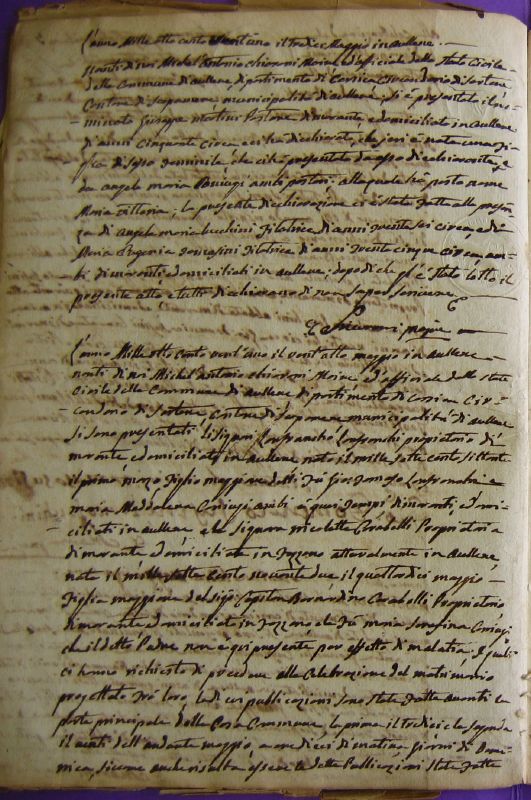 L'anno Mille otto cento vent'uno il tredici Maggio in aullene
nanti di noi Michel Antonio chiaroni Moire ed'officiale dello Stato Civile
della Commune di aullene, dipartimento di Corsica Circondario di Sartene
Cantone di Saparene municipalità di aullene, si è presentato il
Giuseppe Martini Pastore dimorante e domiciliato in aullene
d'anni cinquanta circa e ci hà dichiarato, che jeri è nata una
di Sesso feminile che ci hà presentata da esso dichiarante, e
da angela maria ambi pastori, alla quale hà posto nome
Maria Vittoria; la presente dichiarazione ci è stata fatta alla presen
za di Angela Maria Lucchini filatrice di anni trenta sei circa, e di
Maria filatrice di anni trenta cinque circa, am
bi dimoranti e domiciliati in aullene; dopo di che gl'è stato letto il
presente atto e tutti dichiarano di non saper scrivere
L'anno Mille otto cento vent'uno il vent'otto maggio in aullene
nanti di noi Michel Antonio chiaroni Moire, ed'officiale dello stato
civile della Commune di aullene dipartimento di Corsica Cir
condario di Sartene Cantone di Saparene municipalità di aullene
si sono presentati li Signori Lanfranchi proprietario di
morante e domiciliato in aullene nato il mille sette cento settant
il primo marzo figlio maggiore dell fù Gio: Lanfranchi e
Maria Maddalena ambi a quei tempi dimoranti, e domi
ciliati in aullene e la Signora nicoletta Carabelli Proprietaria
dimorante e domiciliata in Fozzano attualmente in aullene,
nata il mille sette cento novanta due il quattordici maggio
figlia maggiore del Sigr. Capitan Bernardino Carabelli Proprietario
dimorante e domiciliato in Fozzano e la fù maria Serafina
che il detto Padre non è qui presente per effetto di malatia. I quali
ci hanno richiesto di procedere alla Celebrazione del matrimonio
progettato trà loro, le di cui publicazioni sono state fatte avanti la
porta principale della Casa Commune, la prima il tredici e la seconda
il venti dell'andante maggio, a ore dieci di matina Giorni di Dome
nica, siccome anche risulta essere le dette Publicazioni state fatte